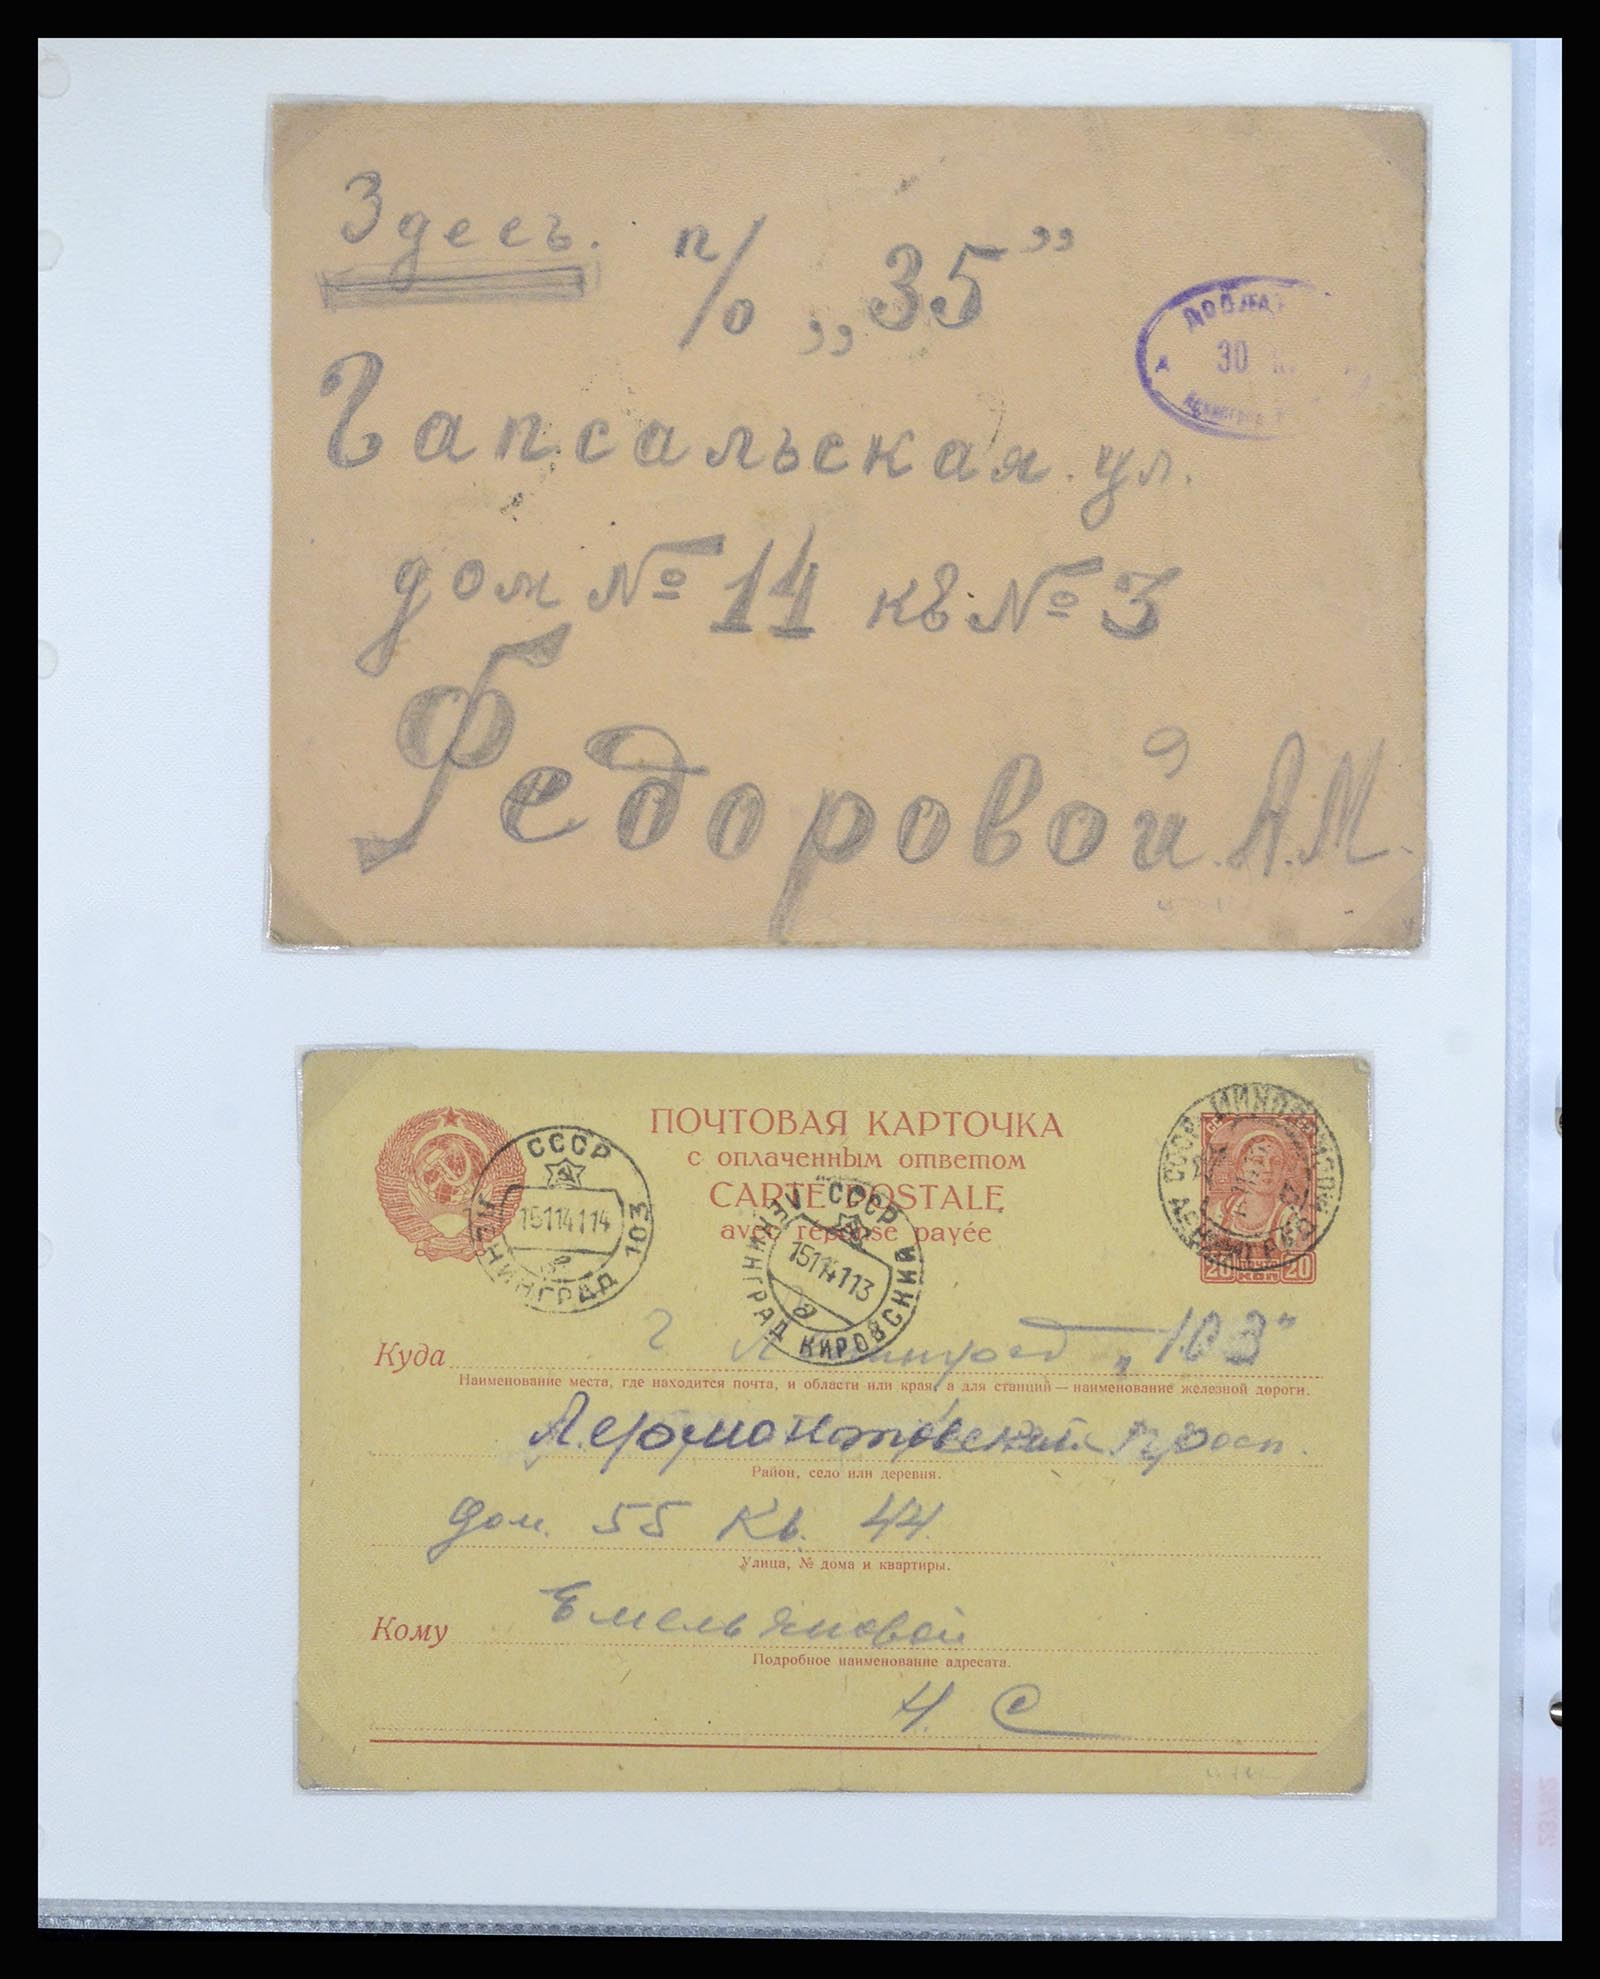 Здесъ. п/о „35”
Гапсальская. ул.
дом № 14 кв № 3
Федоровой. А.М.
30
ПОЧТОВАЯ КАРТОЧКА
с оплаченным ответом
CARTE POSTALE
avec réponse payée
СССР
15114114
ЛЕНИНГРАД 103
СССР
15114113
ЛЕНИНГРАД КИРОВСКИЙ
СССР
ПОЧТА
20 КОП 20
Куда г Ленинград „103”
Наименование места, где находится почта, и области или края, а для станций — наименование железной дороги.
Лермонтовский просп.
Район, село или деревня.
дом. 55 Кв. 44
Улица, № дома и квартиры.
Кому Емельяновой
Подробное наименование адресата.
Н. С